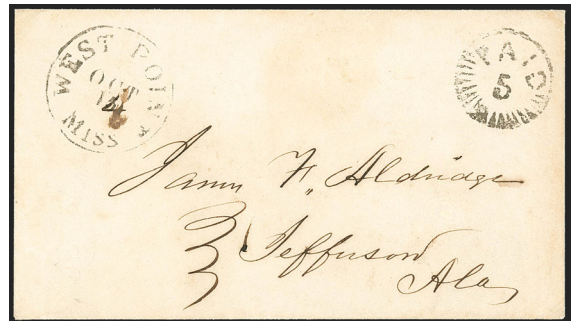 WEST POINT
OCT
MISS
PAID
5
James F. Aldridge
Jefferson
Ala